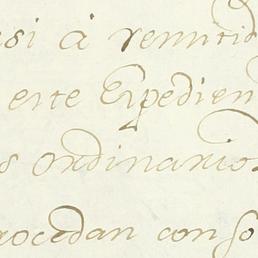 asi á remitid
este Expedien
s ordinario
rocedan con so